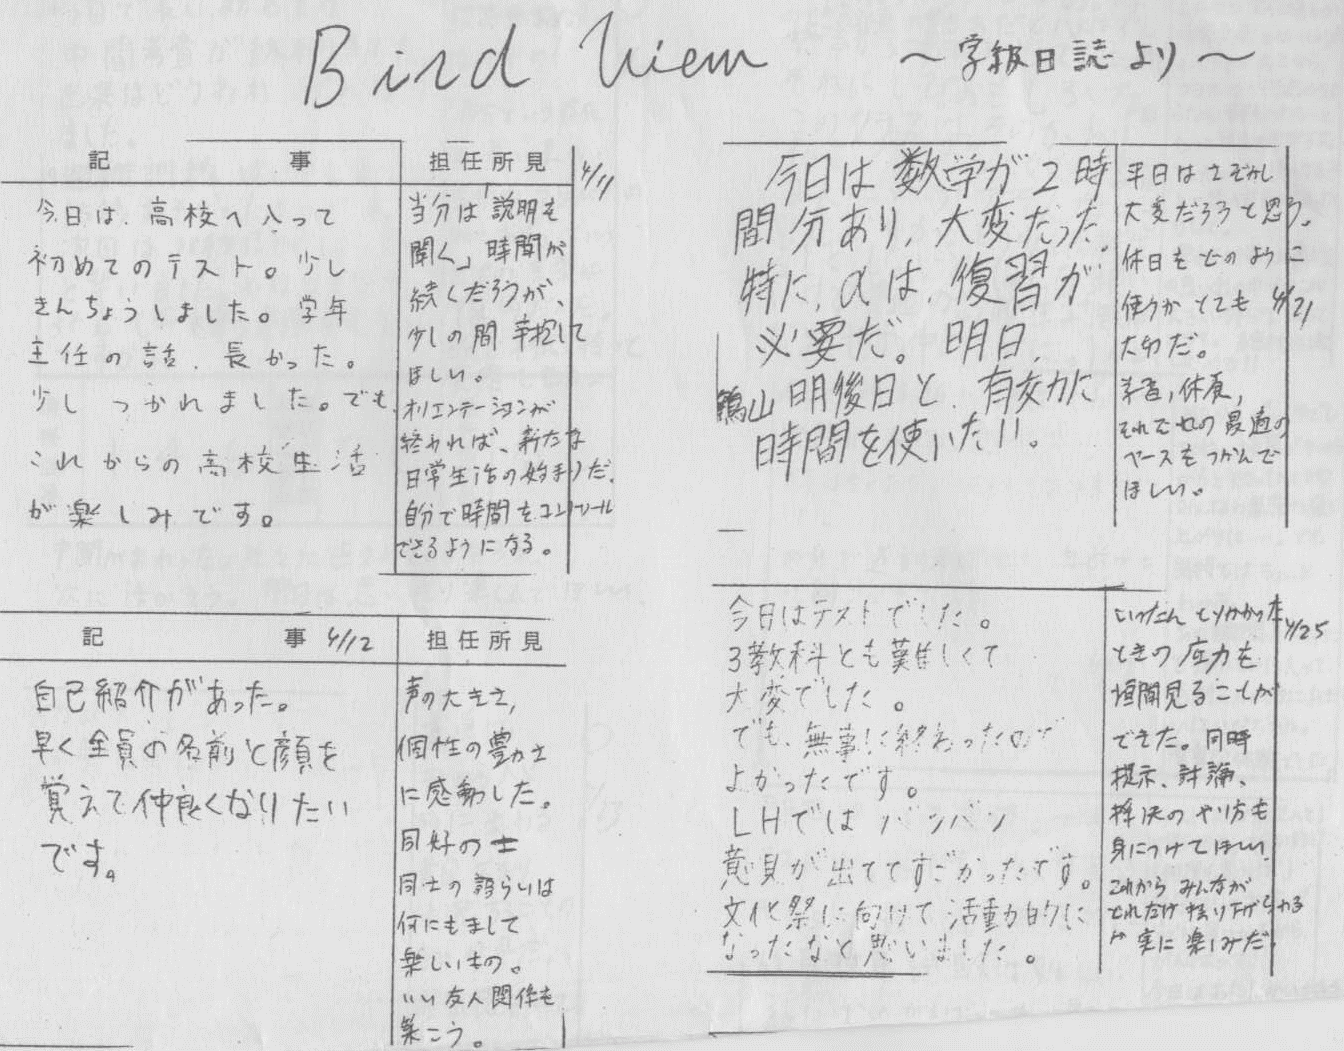 Bird View ～学級日誌より～
記事 担任所見 4/11
今日は、高校へ入って
初めてのテスト。少し
きんちょうしました。学年
主任の話、長かった。
少しつかれました。でも、
これからの高校生活
が楽しみです。
当分は「説明を
聞く」時間が
続くだろうが、
少しの間辛抱して
ほしい。
オリエンテーションが
終われば、新たな
日常生活の始まりだ。
自分で時間をコントロール
できるようになる。
記事 4/12 担任所見
自己紹介があった。
早く全員の名前と顔を
覚えて仲良くなりたい
です。
声の大きさ,
個性の豊かさ
に感動した。
同好の士
同士の語らいは
何にもまして
楽しいもの。
いい友人関係を
築こう。
今日は数学が2時
間分あり、大変だった。
特に、αは、復習が
必要だ。明日、
明後日と、有効に
時間を使いたい。
平日はさぞかし
大変だろうと思う。
休日をどのように
使うかとても 4/21
大切だ。
学習,休養,
それぞれの最適の
ペースをつかんで
ほしい。
今日はテストでした。
3教科とも難しくて
大変でした。
でも、無事に終わったので
よかったです。
LHではバンバン
意見が出ててすごかったです。
文化祭に向けて活動的に
なったなと思いました。
いったんとりかかった 4/25
ときの圧力を
垣間見ることが
できた。同時
提示、討論、
採決のやり方も
身につけてほしい。
これからみんなが
どれだけ盛り上げられる
か実に楽しみだ。